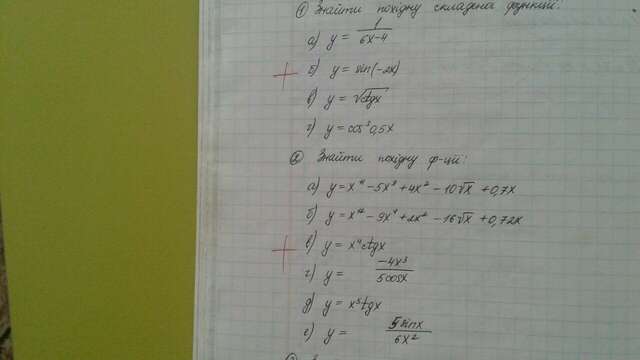 ① Знайти похідну складеної функції:
а) y = 1/(6x-4)
б) y = sin(-2x)
в) y = √ctgx
г) y = cos³0,5x
② Знайти похідну ф-ції:
а) y = x¹¹ - 5x⁸ + 4x² - 10√x + 0,7x
б) y = x¹² - 9x⁴ + 2x² - 16√x + 0,72x
в) y = x⁴ctgx
г) y = -4x³/5cosx
д) y = x⁵tgx
е) y = 5sinx/6x²